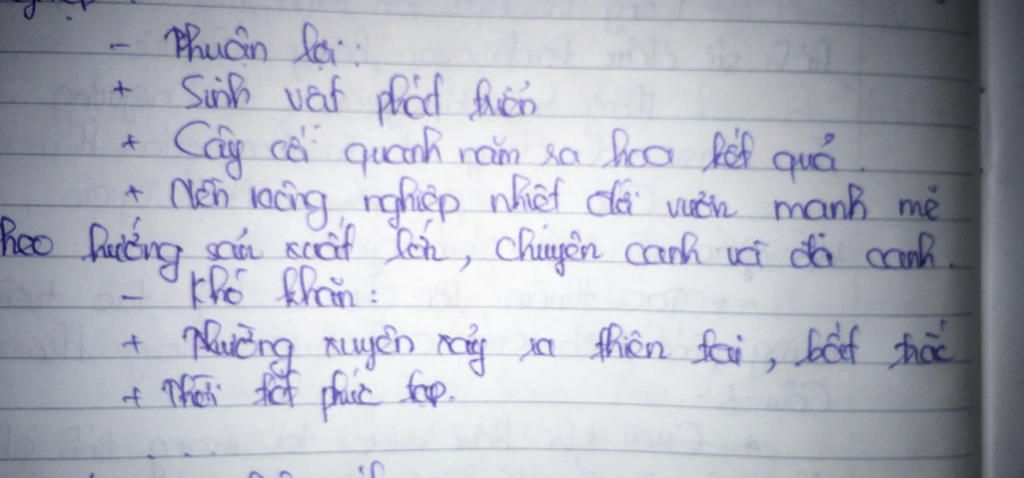 - Thuận lợi:
+ Sinh vật phát triển
+ Cây cối quanh năm ra hoa kết quả.
+ Nền nông nghiệp nhiệt đới vươn mạnh mẽ
heo hướng sản xuất lớn, chuyên canh và đa canh.
- Khó khăn:
+ Thường xuyên xảy ra thiên tai, bất trắc
+ Thời tiết phức tạp.